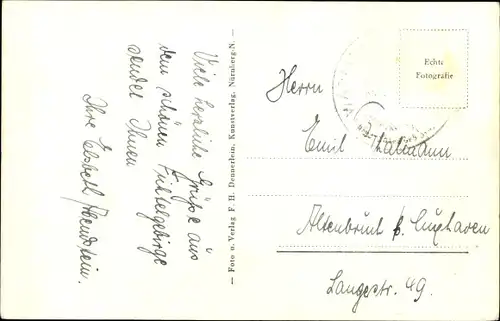 Viele herzliche Grüße aus
dem schönen Fichtelgebirge
sendet Ihnen
Ihre Elsbeth
— Foto u. Verlag F. H. Dennerlein, Kunstverlag, Nürnberg-N. —
Echte
Fotografie
Herrn
Emil Thalmann
Altenbruch b. Cuxhaven
Langestr. 49.